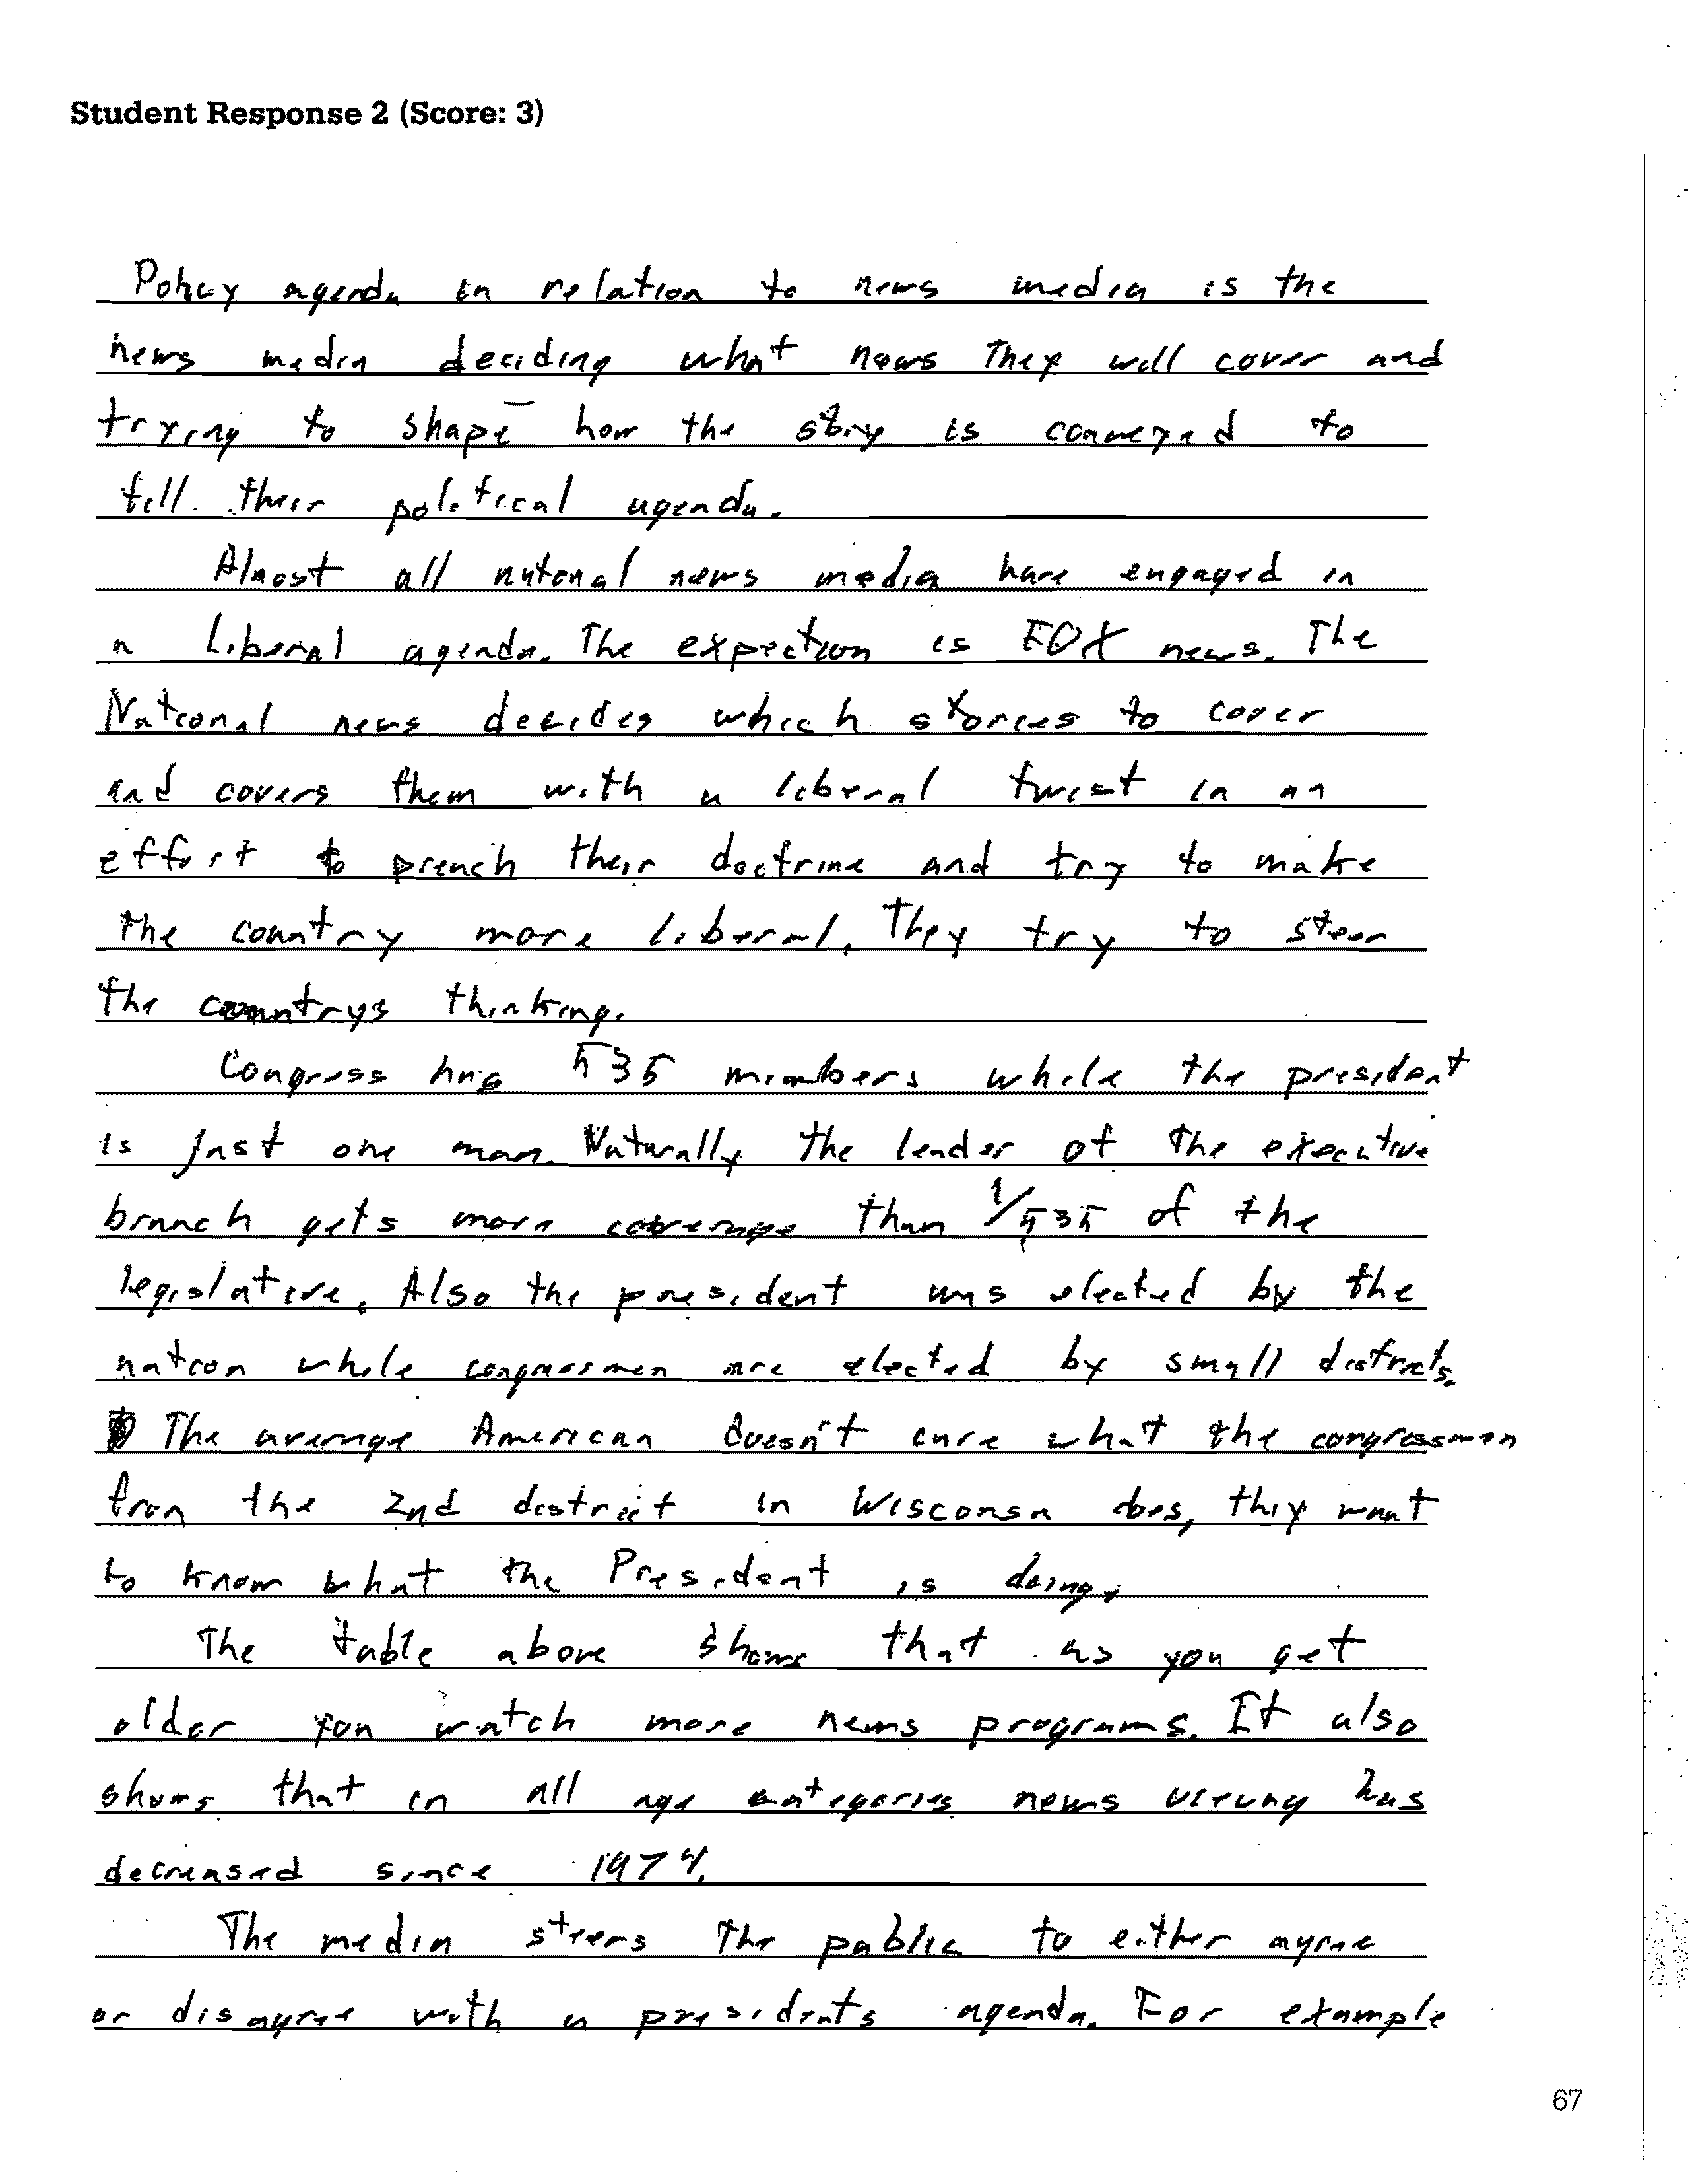 Student Response 2 (Score: 3)
Policy agenda in relation to news media is the
news media deciding what news they will cover and
trying to shape how the story is conveyed to
fill their political agenda.
Almost all national news media have engaged in
a liberal agenda. The expection is FOX news. The
National news decides which stories to cover
and covers them with a liberal twist in an
effort to preach their doctrine and try to make
the country more liberal. They try to steer
the countrys thinking.
Congress has 535 members while the president
is just one man. Naturally the leader of the executive
branch gets more coverage than 1/535 of the
legislative. Also the president was elected by the
nation while congressmen are elected by small districts.
The average American doesn't care what the congressmen
from the 2nd district in Wisconsn does, they want
to know what the President is doing.
The table above shows that as you get
older you watch more news programs. It also
shows that in all age categories news viewing has
decreased since 1974.
The media steers the public to either agree
or disagree with a presidents agenda. For example
67